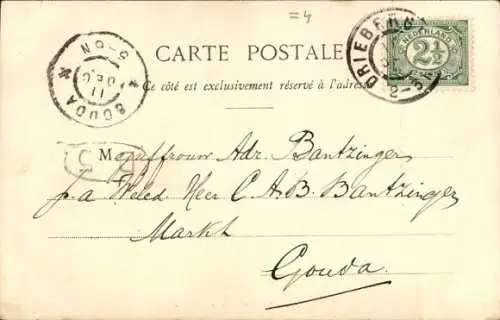 =4
CARTE POSTALE
Ce côté est exclusivement réservé à l'adresse
DRIEBERG
2-3
NEDERLAND
2½
GOUDA
11 DEC
5-6N
Mejuffrouw Adr. Bantzinger
p.a Weled. Heer C. A. B. Bantzinger
Markt
Gouda.